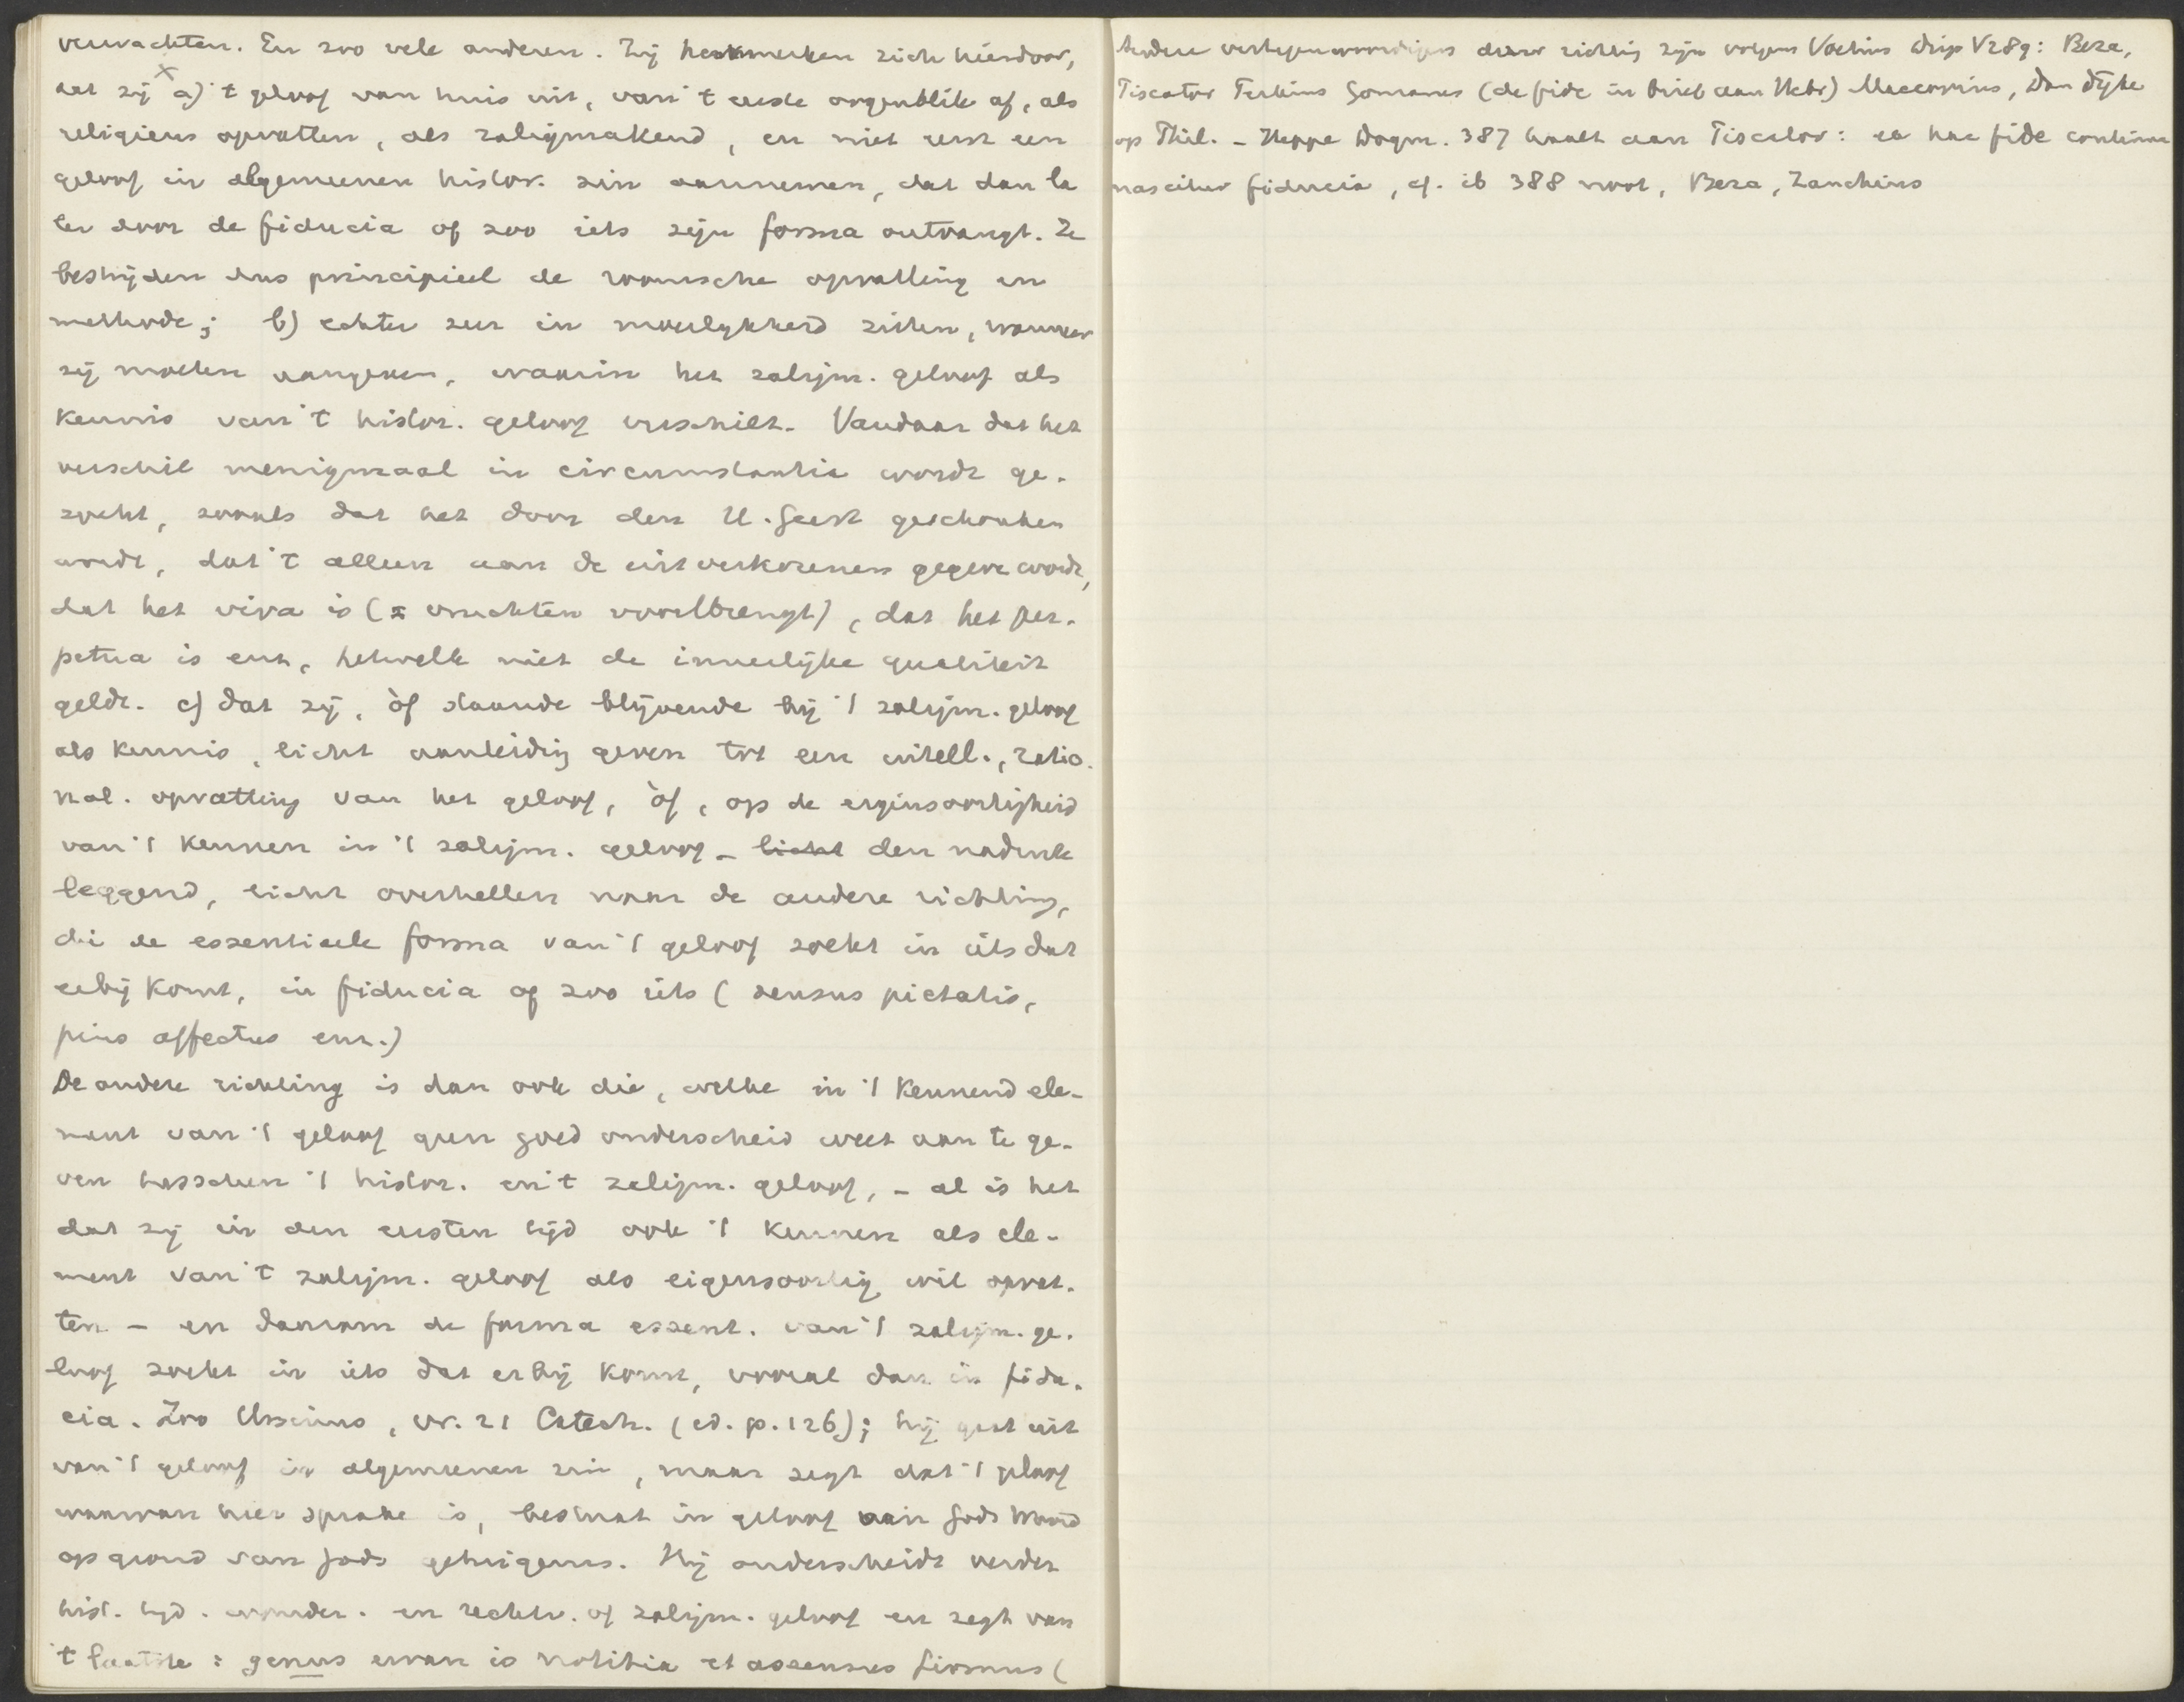 verwachten. En zoo vele anderen. Zij kenmerken zich hierdoor,
dat zij a) 't geloof van huis uit, van 't eerste oogenblik af, als
religieus opvatten, als zaligmakend, en niet eerst een
geloof in algemeenen histor. zin aannemen, dat dan la
ter door de fiducia of zoo iets zijn forma ontvangt. Ze
bestrijden dus principieel de roomsche opvatting en
methode; b) echter zeer in moeilijkheid zitten, wanneer
zij moeten aangeven, waarin het zaligm. geloof als
kennis van 't histor. geloof verschilt. Vandaar dat het
verschil menigmaal in circumstantie wordt ge-
zocht, zooals dat het door den H. Geest geschonken
wordt, dat 't alleen aan de uitverkorenen gegeven wordt,
dat het viva is (vruchten voortbrengt), dat het per-
petua is enz., hetwelk niet de innerlijke qualiteit
geldt. c) dat zij, òf staande blijvende bij 't zaligm. geloof
als kennis, licht aanleiding geven tot een intell., ratio-
nal. opvatting van het geloof, òf, op de eigensoortigheid
van 't kennen in 't zaligm. geloof – licht den nadruk
leggend, licht overhellen naar de andere richting,
die de essentieele forma van 't geloof zoekt in iets dat
erbij komt, in fiducia of zoo iets (sensus pietatis,
pius affectus enz.)
De andere richting is dan ook die, welke in 't kennend ele-
ment van 't geloof geen goed onderscheid weet aan te ge-
ven tusschen 't histor. en 't zaligm. geloof, – al is het
dat zij in den eersten tijd ook 't kennen als ele-
ment van 't zaligm. geloof als eigensoortig wil opvat-
ten – en daarom de forma essent. van 't zaligm. ge-
loof zoekt in iets dat erbij komt, vooral dan in fidu-
cia. Zoo Ursinus, vr. 21 Catech. (ed. p. 126); hij gaat uit
van 't geloof in algemeenen zin, maar zegt dat 't geloof
waarvan hier sprake is, bestaat in geloof aan Gods Woord
op grond van Gods getuigenis. Hij onderscheidt verder
hist. tijd. wonder. en rechtv. of zaligm. geloof en zegt van
't laatste: genus ervan is notitia et assensus firmus (
Andere vertegenwoordigers dezer richting zijn volgens Voetius Disp V 289: Beza,
Piscator Perkins Gomarus (de fide in brief aan Hebr) Maccovius, Dan Dyke
op Phil. – Heppe Dogm. 387 haalt aan Piscator: ex hac fide continuo
nascitur fiducia, cf. ib 388 noot, Beza, Zanchius